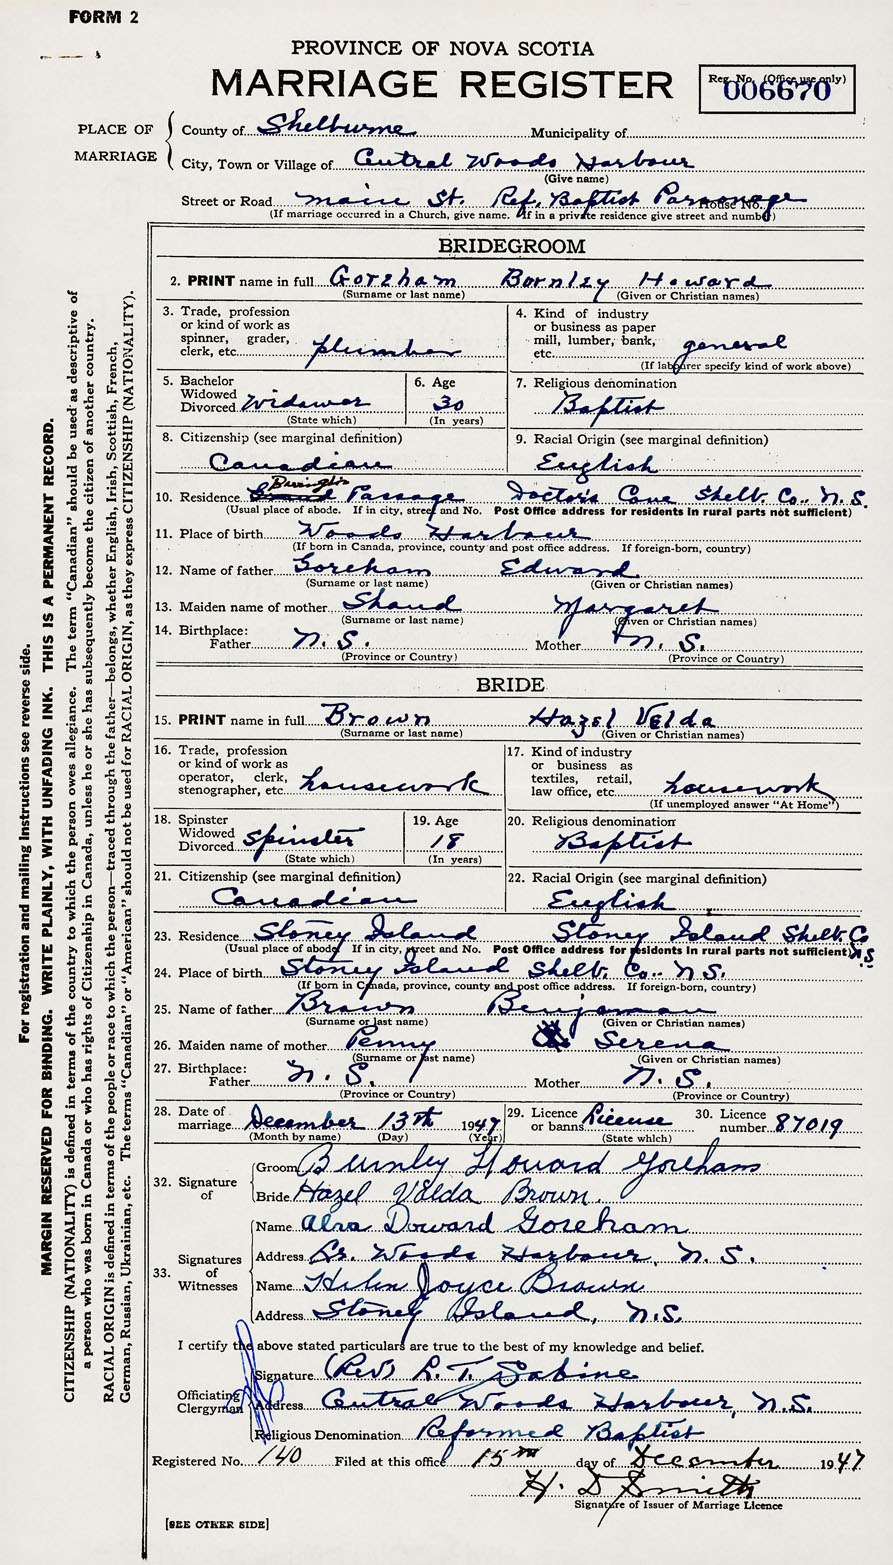 FORM 2
PROVINCE OF NOVA SCOTIA
MARRIAGE REGISTER
Reg. No. (Office use only)
006670
PLACE OF MARRIAGE
County of Shelburne Municipality of
City, Town or Village of Central Woods Harbour
(Give name)
Street or Road Main St. Ref. Baptist Parsonage House No.
(If marriage occurred in a Church, give name. If in a private residence give street and number)
BRIDEGROOM
2. PRINT name in full Goreham Burnley Howard
(Surname or last name) (Given or Christian names)
3. Trade, profession or kind of work as spinner, grader, clerk, etc. plumber
4. Kind of industry or business as paper mill, lumber, bank, etc. general
(If labourer specify kind of work above)
5. Bachelor Widowed Divorced Widower
(State which)
6. Age 30
(In years)
7. Religious denomination
Baptist
8. Citizenship (see marginal definition)
Canadian
9. Racial Origin (see marginal definition)
English
Barrington
10. Residence Passage Doctor's Cove Shelb. Co. N.S.
(Usual place of abode. If in city, street and No. Post Office address for residents in rural parts not sufficient)
11. Place of birth Woods Harbour
(If born in Canada, province, county and post office address. If foreign-born, country)
12. Name of father Goreham Edward
(Surname or last name) (Given or Christian names)
13. Maiden name of mother Shand Margaret
(Surname or last name) (Given or Christian names)
14. Birthplace:
Father N.S. Mother N.S.
(Province or Country) (Province or Country)
BRIDE
15. PRINT name in full Brown Hazel Velda
(Surname or last name) (Given or Christian names)
16. Trade, profession or kind of work as operator, clerk, stenographer, etc. housework
17. Kind of industry or business as textiles, retail, law office, etc. housework
(If unemployed answer "At Home")
18. Spinster Widowed Divorced Spinster
(State which)
19. Age 18
(In years)
20. Religious denomination
Baptist
21. Citizenship (see marginal definition)
Canadian
22. Racial Origin (see marginal definition)
English
23. Residence Stoney Island Stoney Island Shelb. Co N.S
(Usual place of abode. If in city, street and No. Post Office address for residents in rural parts not sufficient)
24. Place of birth Stoney Island Shelb. Co.. N.S.
(If born in Canada, province, county and post office address. If foreign-born, country)
25. Name of father Brown Benjaman
(Surname or last name) (Given or Christian names)
26. Maiden name of mother Penny Serena
(Surname or last name) (Given or Christian names)
27. Birthplace:
Father N.S. Mother N.S.
(Province or Country) (Province or Country)
28. Date of marriage December 13th 1947
(Month by name) (Day) (Year)
29. Licence or banns License
(State which)
30. Licence number 87019
32. Signature of
Groom Burnley Howard Goreham
Bride Hazel Velda Brown.
33. Signatures of Witnesses
Name Alva Doward Goreham
Address Lr. Woods Harbour, N.S.
Name Helen Joyce Brown
Address Stoney Island, N.S.
I certify the above stated particulars are true to the best of my knowledge and belief.
Officiating Clergyman
Signature (Rev) L.T. Sabine
Address Central Woods Harbour, N.S.
Religious Denomination Reformed Baptist
Registered No. 140 Filed at this office 15th day of December 1947
H. D Smith
Signature of Issuer of Marriage Licence
[SEE OTHER SIDE]
For registration and mailing instructions see reverse side.
MARGIN RESERVED FOR BINDING. WRITE PLAINLY, WITH UNFADING INK. THIS IS A PERMANENT RECORD.
CITIZENSHIP (NATIONALITY) is defined in terms of the country to which the person owes allegiance. The term "Canadian" should be used as descriptive of
a person who was born in Canada or who has rights of Citizenship in Canada, unless he or she has subsequently become the citizen of another country.
RACIAL ORIGIN is defined in terms of the people or race to which the person—traced through the father—belongs, whether English, Irish, Scottish, French,
German, Russian, Ukrainian, etc. The terms "Canadian" or "American" should not be used for RACIAL ORIGIN, as they express CITIZENSHIP (NATIONALITY).